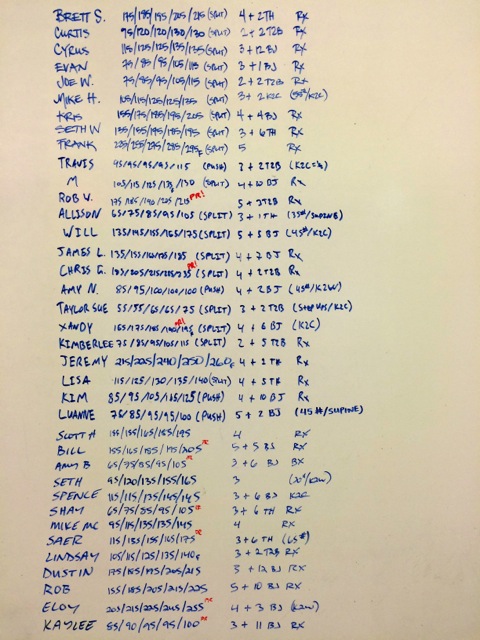 BRETT S. 175/185/195/205/215 (SPLIT) 4 + 2TH RX
CURTIS 95/120/120/130/130 (SPLIT) 2 + 2 T2B RX
CYRUS 115/125/125/135/135 (SPLIT) 3 + 12 BJ RX
EVAN 75/85/95/105/115 (SPLIT) 3 + 1 BJ RX
JOE W. 75/85/95/105/115 (SPLIT) 2 + 2 T2B RX
MIKE H. 105/115/125/125/135 (SPLIT) 3 + 2 K2C (55#/K2C)
KRIS 155/175/185/195/205 (SPLIT) 4 + 4 BJ RX
SETH W 135/155/195/185/195 (SPLIT) 3 + 6 TH RX
FRANK (SPLIT) 5 RX
TRAVIS 95/95/95/95/115 (PUSH) 3 + 2 T2B
M 105/115/125/ /130 (SPLIT) 4 + 10 BJ RX
ROB V. 175/185/190/205/215 PR! 5 + 2T2B RX
ALLISON 65/75/85/95/105 (SPLIT) 3 + 1TH (35#/SUPINE)
WILL 135/145/155/165/175 (SPLIT) 5 + 5 BJ (45#/K2C)
JAMES L. 135/155/ /175/185 (SPLIT) 4 + 7 BJ RX
CHRIS G. 185/205/215/225/235 PR! (SPLIT) 4 + 2T2B RX
AMY N. 85/95/100/100/100 (PUSH) 4 + 2 BJ (45#/K2W)
TAYLOR SUE 55/55/65/65/75 (SPLIT) 3 + 2 T2B (STEP UPS/K2C)
XANDY 165/175/185/190/195 PR! (SPLIT) 4 + 6 BJ (K2C)
KIMBERLEE 75/85/95/105/115 (SPLIT) 2 + 5 T2B RX
JEREMY 215/225/240/250/260F 4 + 2 TH RX
LISA 115/125/130/135/140 (SPLIT) 4 + 5 TH RX
KIM 85/95/105/115/125 (PUSH) 4 + 10 BJ RX
LUANNE 75/85/95/95/100 (PUSH) 5 + 2 BJ (45#/SUPINE)
SCOTT H 135/155/165/185/195 4 RX
BILL 155/165/185/195/205 PR 5 + 5 BJ RX
AMY B 65/75/85/95/105 PR 3 + 6 BJ RX
SETH 95/120/135/155/165 3 (20"/K2W)
SPENCE 115/115/135/145/145 3 + 6 BJ K2C
SHAY 65/75/85/95/105 PR 3 + 6 TH RX
MIKE MC 95/115/135/135/145 4 RX
SAER 115/135/155/165/175 PR 3 + 6 TH (65#)
LINDSAY 105/115/125/135/140F 3 + 2 T2B RX
DUSTIN 175/185/195/205/215 3 + 12 BJ RX
ROB 155/185/205/215/225 5 + 10 BJ RX
ELOY 205/215/225/245/255 PR 4 + 3 BJ (K2W)
KAYLEE 85/90/95/95/100 PR 3 + 11 BJ RX